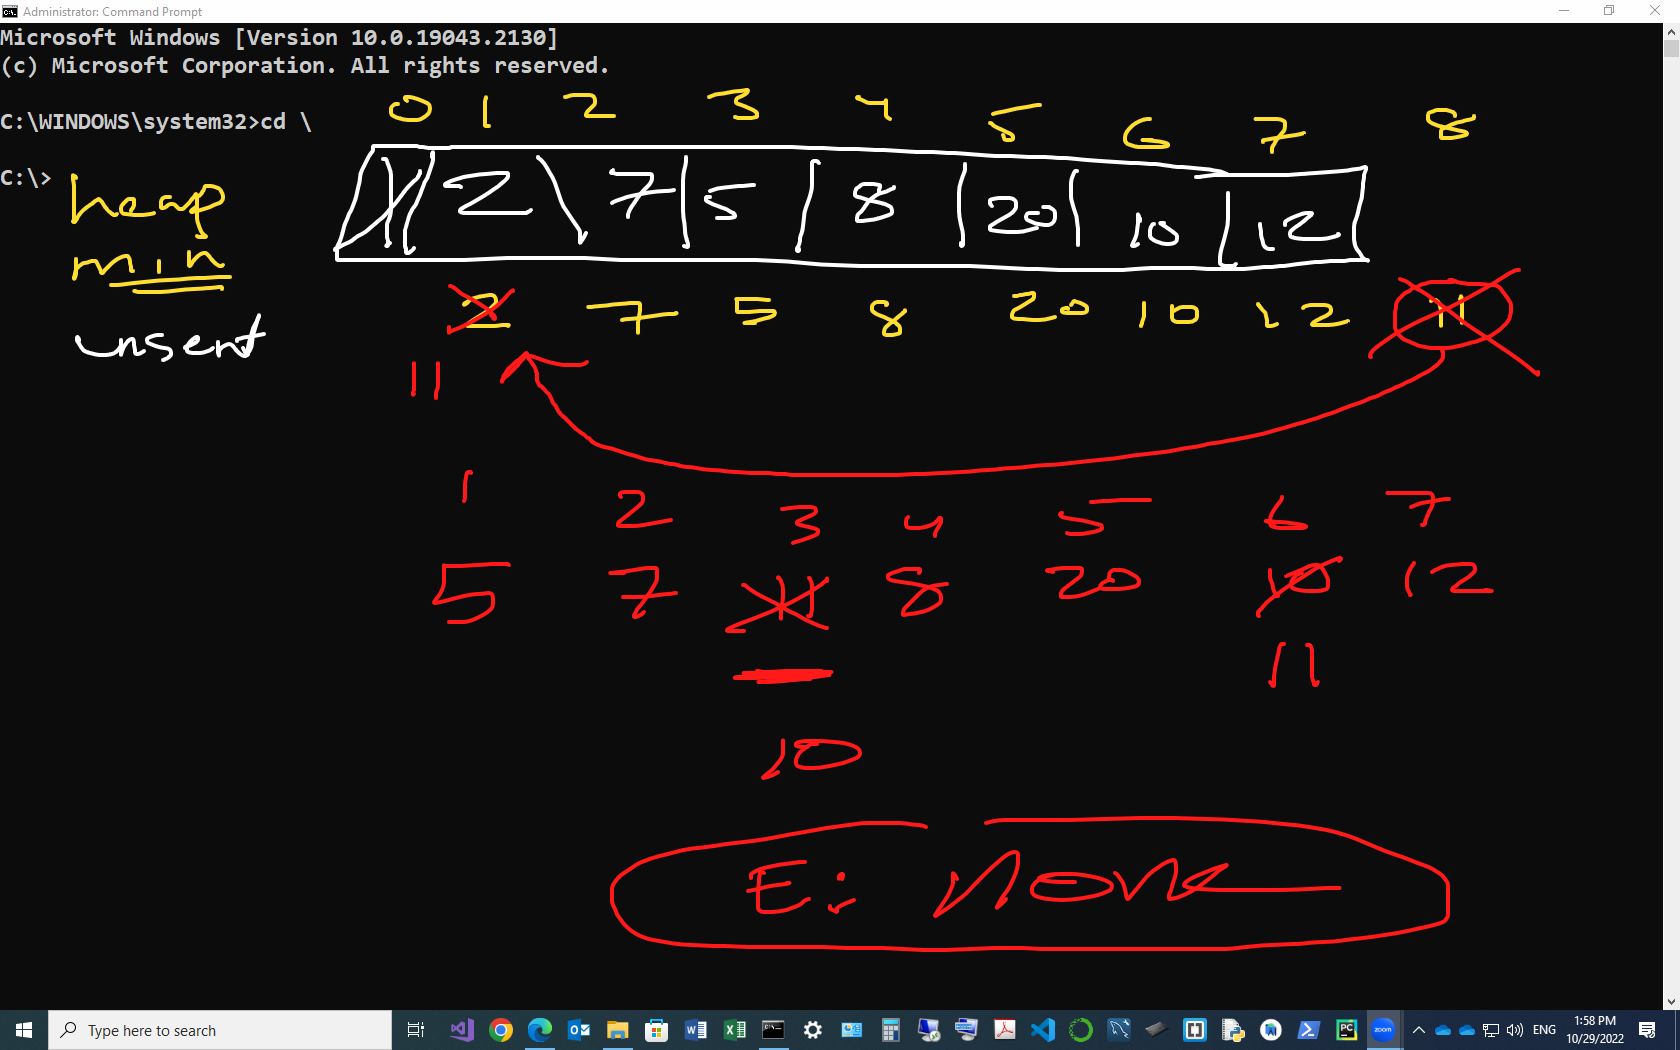 Administrator: Command Prompt
Microsoft Windows [Version 10.0.19043.2130]
(c) Microsoft Corporation. All rights reserved.
C:\WINDOWS\system32>cd \
0 1 2 3 4 5 6 7 8
C:\>
heap
2 7 5 8 20 10 12
min
2 7 5 8 20 10 12 11
unsert
11
1 2 3 4 5 6 7
5 7 11 8 20 10 12
11
10
E: none
Type here to search
ENG
1:58 PM
10/29/2022